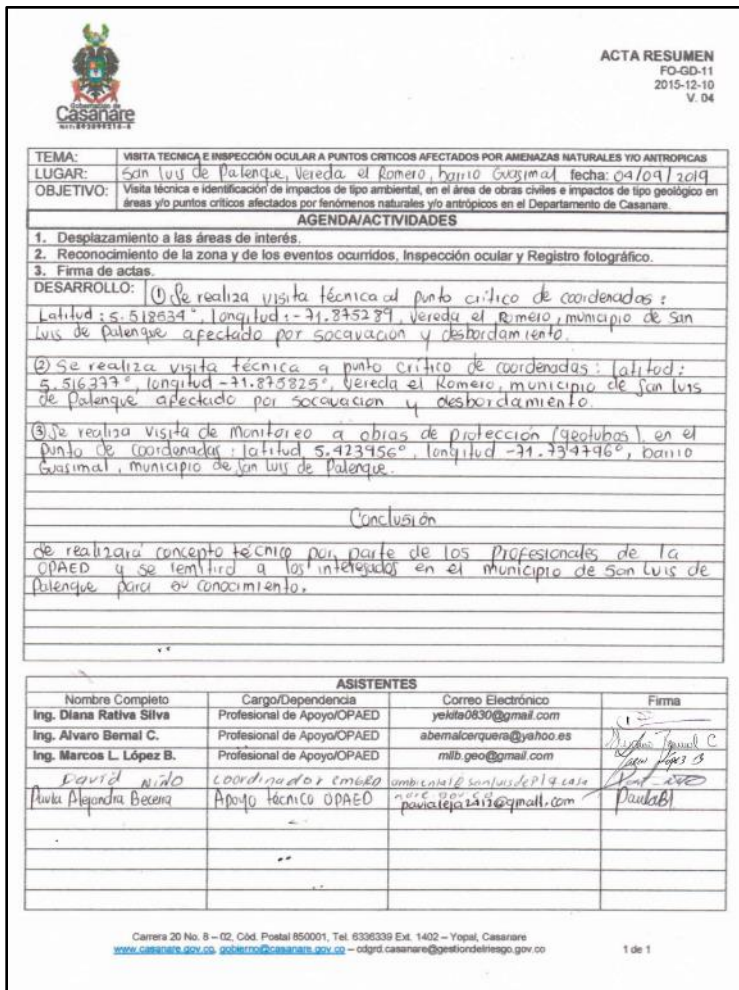 Gobernación de
Casanare
ACTA RESUMEN
FO-GD-11
2015-12-10
V. 04
TEMA: VISITA TECNICA E INSPECCIÓN OCULAR A PUNTOS CRITICOS AFECTADOS POR AMENAZAS NATURALES Y/O ANTROPICAS
LUGAR: San Luis de Palenque, Vereda el Romero, barrio Guasimal fecha: 04/09/2019
OBJETIVO: Visita técnica e identificación de impactos de tipo ambiental, en el área de obras civiles e impactos de tipo geológico en
áreas y/o puntos críticos afectados por fenómenos naturales y/o antrópicos en el Departamento de Casanare.
AGENDA/ACTIVIDADES
1. Desplazamiento a las áreas de interés.
2. Reconocimiento de la zona y de los eventos ocurridos, Inspección ocular y Registro fotográfico.
3. Firma de actas.
DESARROLLO: ① Se realiza visita técnica al punto crítico de coordenadas:
Latitud: 5.518634°, longitud: -71.875289, Vereda el Romero, municipio de San
Luis de Palenque afectado por socavacion y desbordamiento.
② Se realiza visita técnica a punto crítico de coordenadas: latitud:
5.516377°, longitud -71.875825°, Vereda el Romero, municipio de San Luis
de Palenque afectado por socavacion y desbordamiento.
③ Se realiza visita de Monitoreo a obras de protección (geotubos), en el
punto de coordenadas: latitud, 5.423956°, longitud -71.734796°, barrio
Guasimal, municipio de San Luis de Palenque.
Conclusión
Se realizará concepto técnico por parte de los Profesionales de la
OPAED y se remitirá a los interesados en el municipio de San Luis de
Palenque para su conocimiento.
ASISTENTES
Nombre Completo Cargo/Dependencia Correo Electrónico Firma
Ing. Diana Rativa Silva Profesional de Apoyo/OPAED yekita0830@gmail.com
Ing. Alvaro Bernal C. Profesional de Apoyo/OPAED abernalcerquera@yahoo.es Bernal C
Ing. Marcos L. López B. Profesional de Apoyo/OPAED mllb.geo@gmail.com López B
David Niño Coordinador CMGRD
Paula Alejandra Becerra Apoyo técnico OPAED paulaleja2412@gmail.com PaulaB
Carrera 20 No. 8 – 02, Cód. Postal 850001, Tel. 6336339 Ext. 1402 – Yopal, Casanare
www.casanare.gov.co, gobierno@casanare.gov.co – cdgrd.casanare@gestiondelriesgo.gov.co 1 de 1